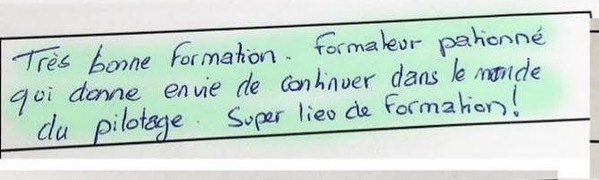 Très bonne formation. Formateur pationné
qui donne envie de continuer dans le monde
du pilotage. Super lieu de formation!